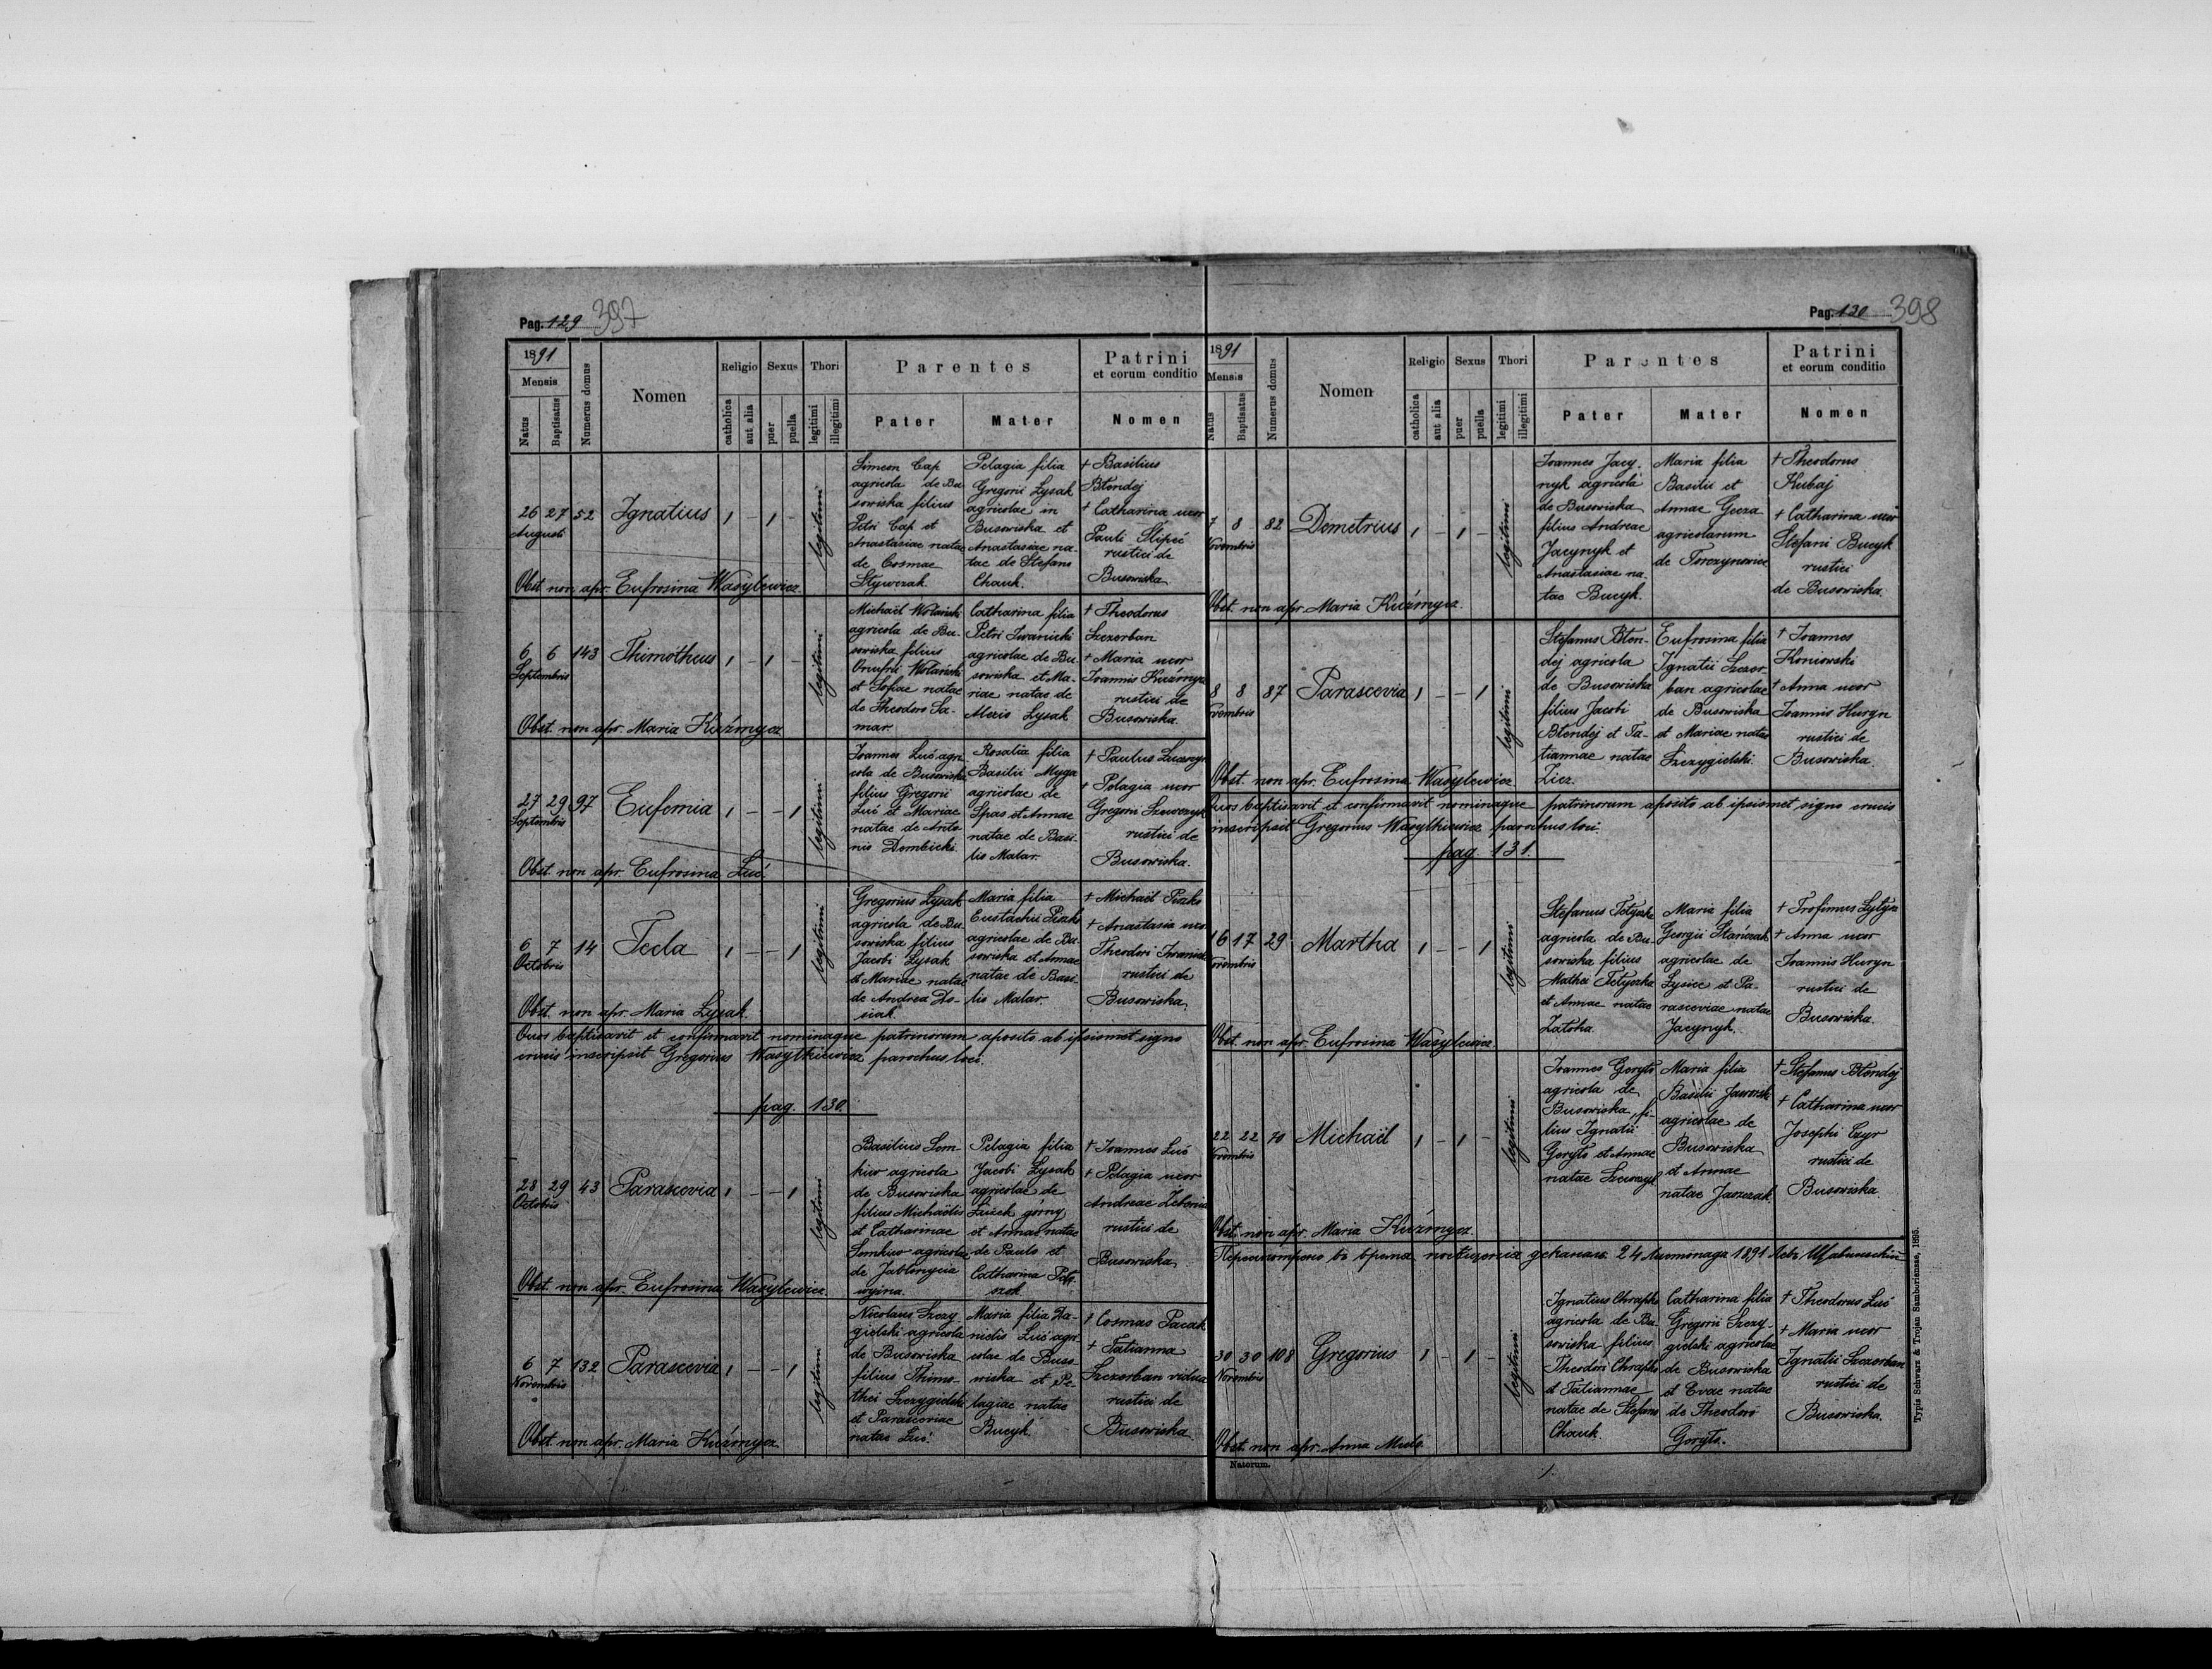 Pag. 129 397
1891
Mensis
Natus
Baptisatus
Numerus domus
Nomen
Religio
catholica
aut alia
Sexus
puer
puella
Thori
legitimi
illegitimi
Parentes
Pater
Mater
Patrini
et eorum conditio
Nomen
26 27 52 Ignatius 1 - 1 - legitimi
Augusti
Simeon Cap
agricola de Bu
sowiska filius
Petri Cap et
Anastasiae natae
de Cosmae
Stywczak
Pelagia filia
Gregorii Lysak
agricolae in
Busowiska et
Anastasiae na-
tae de Stefano
Chauk.
† Basilius
Blondej
† Catharina uxor
Pauli Slipeć
rustici de
Busowiska
Obst. non apr. Eufrosina Wasylewicz.
6 6 143 Thimotheus 1 - 1 - legitimi
Septembris
Michaël Wolański
agricola de Bu-
sowiska filius
Onufrii Wolański
et Sofiae natae
de Theodoro Sa-
mar.
Catharina filia
Petri Iwanicki
agricolae de Bu-
sowiska et Ma-
riae natae de
Alexio Lysak
† Theodorus
Szczerban
† Maria uxor
Ioannis Kuźmycz
rustici de
Busowiska.
Obst. non apr. Maria Kuźmycz
27 29 97 Eufemia 1 - - 1 legitimi
Septembris
Ioannes Luć agri
cola de Busowiska
filius Gregorii
Luć et Mariae
natae de Anto-
nio Dembicki.
Rosalia filia
Basilii Myga
agricolae de
Spas et Annae
natae de Basi-
lio Malar.
† Paulus
† Pelagia uxor
Gregorii
rustici de
Busowiska.
Obst. non apr. Eufrosina Luć.
6 7 14 Tecla 1 - - 1 legitimi
Octobris
Gregorius Lysak
agricola de Bu
sowiska filius
Jacobi Lysak
et Mariae natae
de Andrea Do-
siak.
Maria filia
Eustachii Piszko
agricolae de Bu-
sowiska et Annae
natae de Basi
lio Malar.
† Michaël Piszko
† Anastasia uxor
Theodori
rustici de
Busowiska.
Obst. non apr. Maria Lysak.
Quos baptisavit et confirmavit nominaque patrinorum aposito ab ipsismet signo
crucis inscripsit Gregorius Wasylkiewicz parochus loci.
pag. 130.
28 29 43 Parascevia 1 - - 1 legitimi
Octobris
Basilius Som-
kiw agricola
de Busowiska
filius Michaëlis
et Catharinae
Somkiw agricolae
de Jablonycia
wyżna.
Pelagia filia
Jacobi Lysak
agricolae de
Łużek górny
et Annae natae
de Paulo et
Catharina
† Ioannes Luć
† Pelagia uxor
Andreae
rustici de
Busowiska
Obst. non apr. Eufrosina Wasylewicz.
6 7 132 Parascevia 1 - - 1 legitimi
Novembris
Nicolaus Szczy
gielski agricola
de Busowiska
filius Thimo-
thei Szczygielski
et Parasceviae
natae Luć.
Maria filia Da-
nielis Luć agri-
colae de Buso-
wiska et Pe-
lagiae natae
Bucyk.
† Cosmas Pacak
† Tatianna
Szczerban vidua
rustici de
Busowiska.
Obst. non apr. Maria Kuźmycz
Pag. 130 398
1891
Mensis
Natus
Baptisatus
Numerus domus
Nomen
Religio
catholica
aut alia
Sexus
puer
puella
Thori
legitimi
illegitimi
Parentes
Pater
Mater
Patrini
et eorum conditio
Nomen
7 8 82 Demetrius 1 - 1 - legitimi
Novembris
Ioannes Jacy-
nyk agricola
de Busowiska
filius Andreae
Jacynyk et
Anastasiae na-
tae Bucyk.
Maria filia
Basilii et
Annae Gocza
agricolarum
de Torczynowice
† Theodorus
Kubaj
† Catharina uxor
Stefani Bucyk
rustici
de Busowiska.
Obst. non apr. Maria Kuźmycz.
8 8 87 Parascevia 1 - - 1 legitimi
Novembris
Stefanus Blon-
dej agricola
de Busowiska
filius Jacobi
Blondej et Ta-
tiannae natae
Zicz.
Eufrosina filia
Ignatii Szczer
ban agricolae
de Busowiska
et Mariae natae
Szczygielski.
† Ioannes
Koniowski
† Anna uxor
Ioannis Huryn
rustici de
Busowiska.
Obst. non apr. Eufrosina Wasylewicz
Quos baptisavit et confirmavit nominaque patrinorum aposito ab ipsismet signo crucis
inscripsit Gregorius Wasylkiewicz parochus loci.
pag 131.
16 17 29 Martha 1 - - 1 legitimi
Novembris
Stefanus Fetyszko
agricola de Bu-
sowiska filius
Mathei Fetyszko
et Annae natae
Zatoha.
Maria filia
Georgii Stańczak
agricolae de
Łysice et Pa-
rasceviae natae
Jacynyk.
† Trofimus
† Anna uxor
Ioannis Huryn
rustici de
Busowiska.
Obst. non apr. Eufrosina Wasylewicz.
22 22 70 Michaël 1 - 1 - legitimi
Novembris
Ioannes Goryto
agricola de
Busowiska, fi-
lius Ignatii
Goryto et Annae
natae
Maria filia
Basilii Jaworski
agricolae de
Busowiska
et Annae
natae Jaszczak.
† Stefanus Blondej
† Catharina uxor
Josephi Czyr
rustici de
Busowiska.
Obst. non apr. Maria Kuzmycz.
24 1891
30 30 108 Gregorius 1 - 1 - legitimi
Novembris
Ignatius Chrapko
agricola de Bu-
sowiska filius
Theodori Chrapko
et Tatiannae
natae de Stefano
Chauk.
Catharina filia
Gregorii Szczy-
gielski agricolae
de Busowiska
et Evae natae
de Theodoro
Goryto.
† Theodorus Luć
† Maria uxor
Ignatii Szczerban
rustici de
Busowiska.
Obst. non apr. Anna
Natorum.
Typis Schwarz & Trojan Samboriensae, 1895.